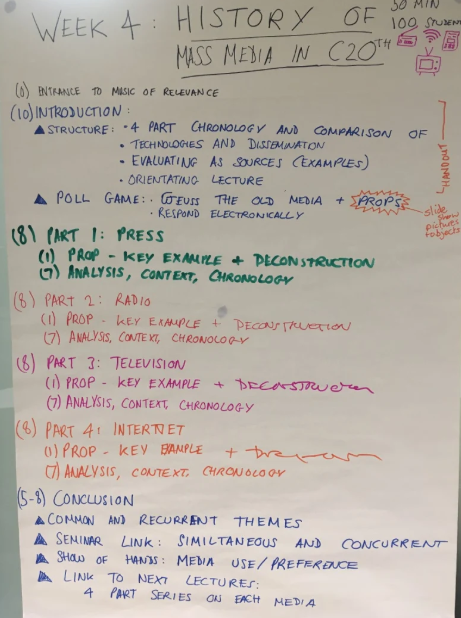 WEEK 4: HISTORY OF
MASS MEDIA IN C20TH
50 MIN
100 STUDENTS
(0) ENTRANCE TO MUSIC OF RELEVANCE
(10) INTRODUCTION:
▲ STRUCTURE: • 4 PART CHRONOLOGY AND COMPARISON OF
• TECHNOLOGIES AND DISSEMINATION
• EVALUATING AS SOURCES (EXAMPLES)
• ORIENTATING LECTURE
▲ POLL GAME: • GUESS THE OLD MEDIA + PROPS
• RESPOND ELECTRONICALLY
HANDOUT
slide
show
pictures
of objects
(8) PART 1: PRESS
(1) PROP - KEY EXAMPLE + DECONSTRUCTION
(7) ANALYSIS, CONTEXT, CHRONOLOGY
(8) PART 2: RADIO
(1) PROP - KEY EXAMPLE + DECONSTRUCTION
(7) ANALYSIS, CONTEXT, CHRONOLOGY
(8) PART 3: TELEVISION
(1) PROP - KEY EXAMPLE +
(7) ANALYSIS, CONTEXT, CHRONOLOGY
(8) PART 4: INTERNET
(1) PROP - KEY EXAMPLE +
(7) ANALYSIS, CONTEXT, CHRONOLOGY
(5-8) CONCLUSION
▲ COMMON AND RECURRENT THEMES
▲ SEMINAR LINK: SIMILTANEOUS AND CONCURRENT
▲ SHOW OF HANDS: MEDIA USE/PREFERENCE
▲ LINK TO NEXT LECTURES:
4 PART SERIES ON EACH MEDIA